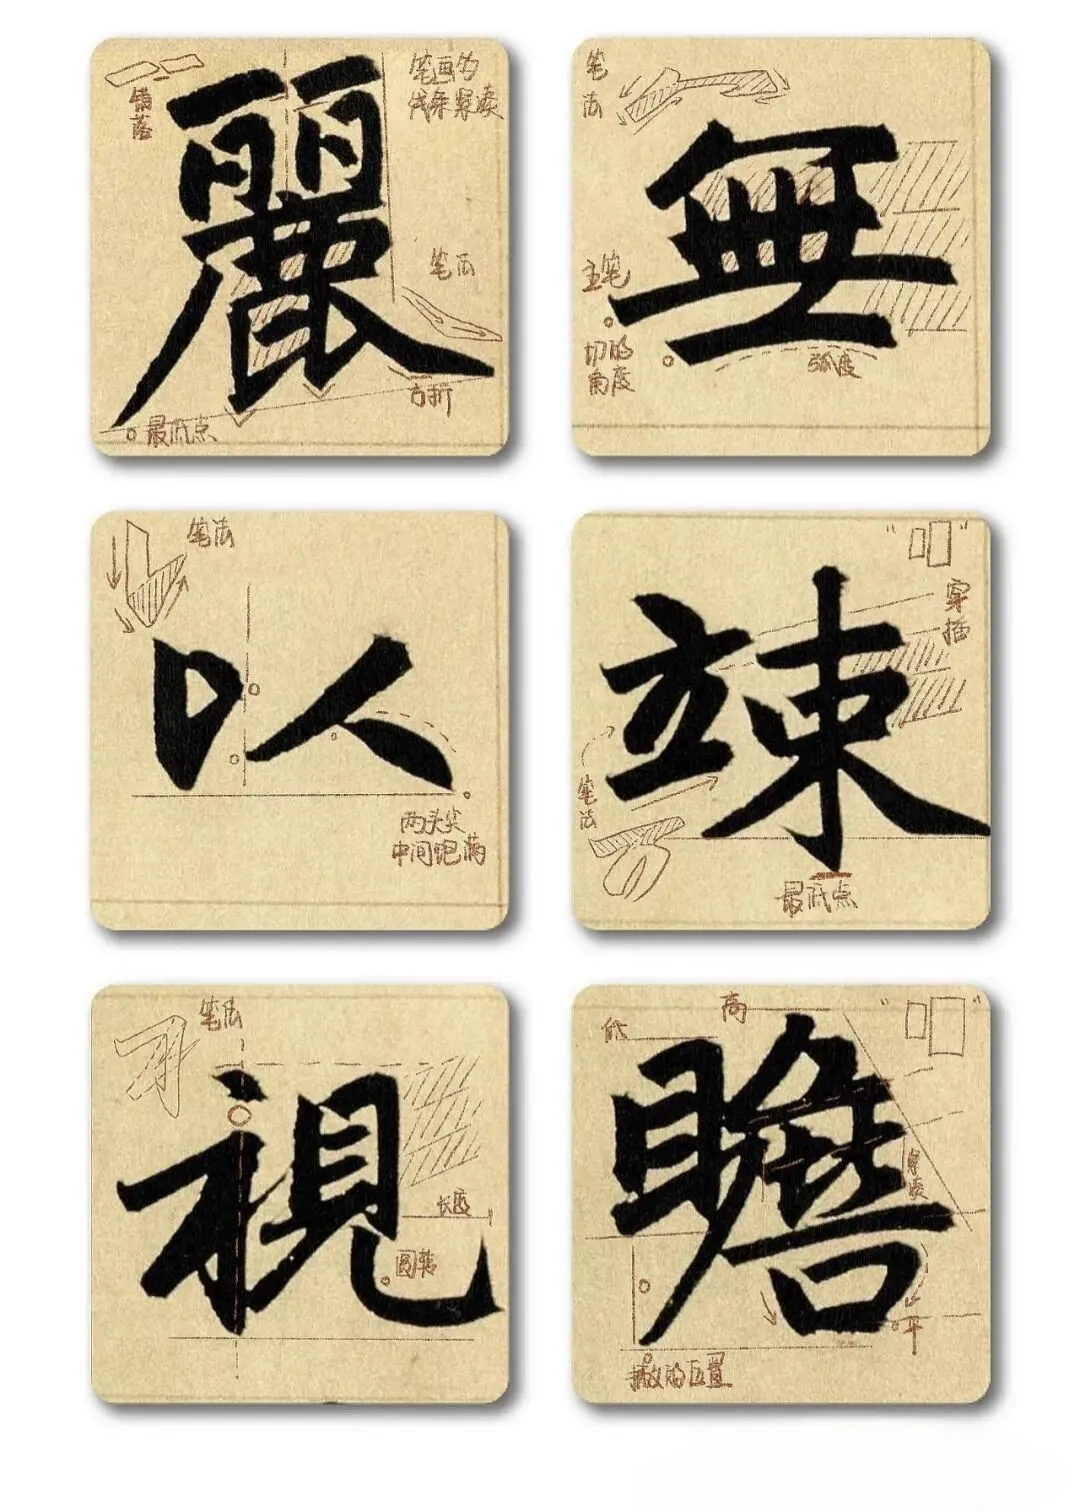 麗
错落
笔画多
伐条紧凑
笔法
方折
最低点
無
笔法
主笔
切的
角度
弧度
以
笔法
两头尖
中间饱满
竦
穿插
笔法
最低点
視
笔法
长度
圆转
瞻
低
高
紧凑
平
撇的位置